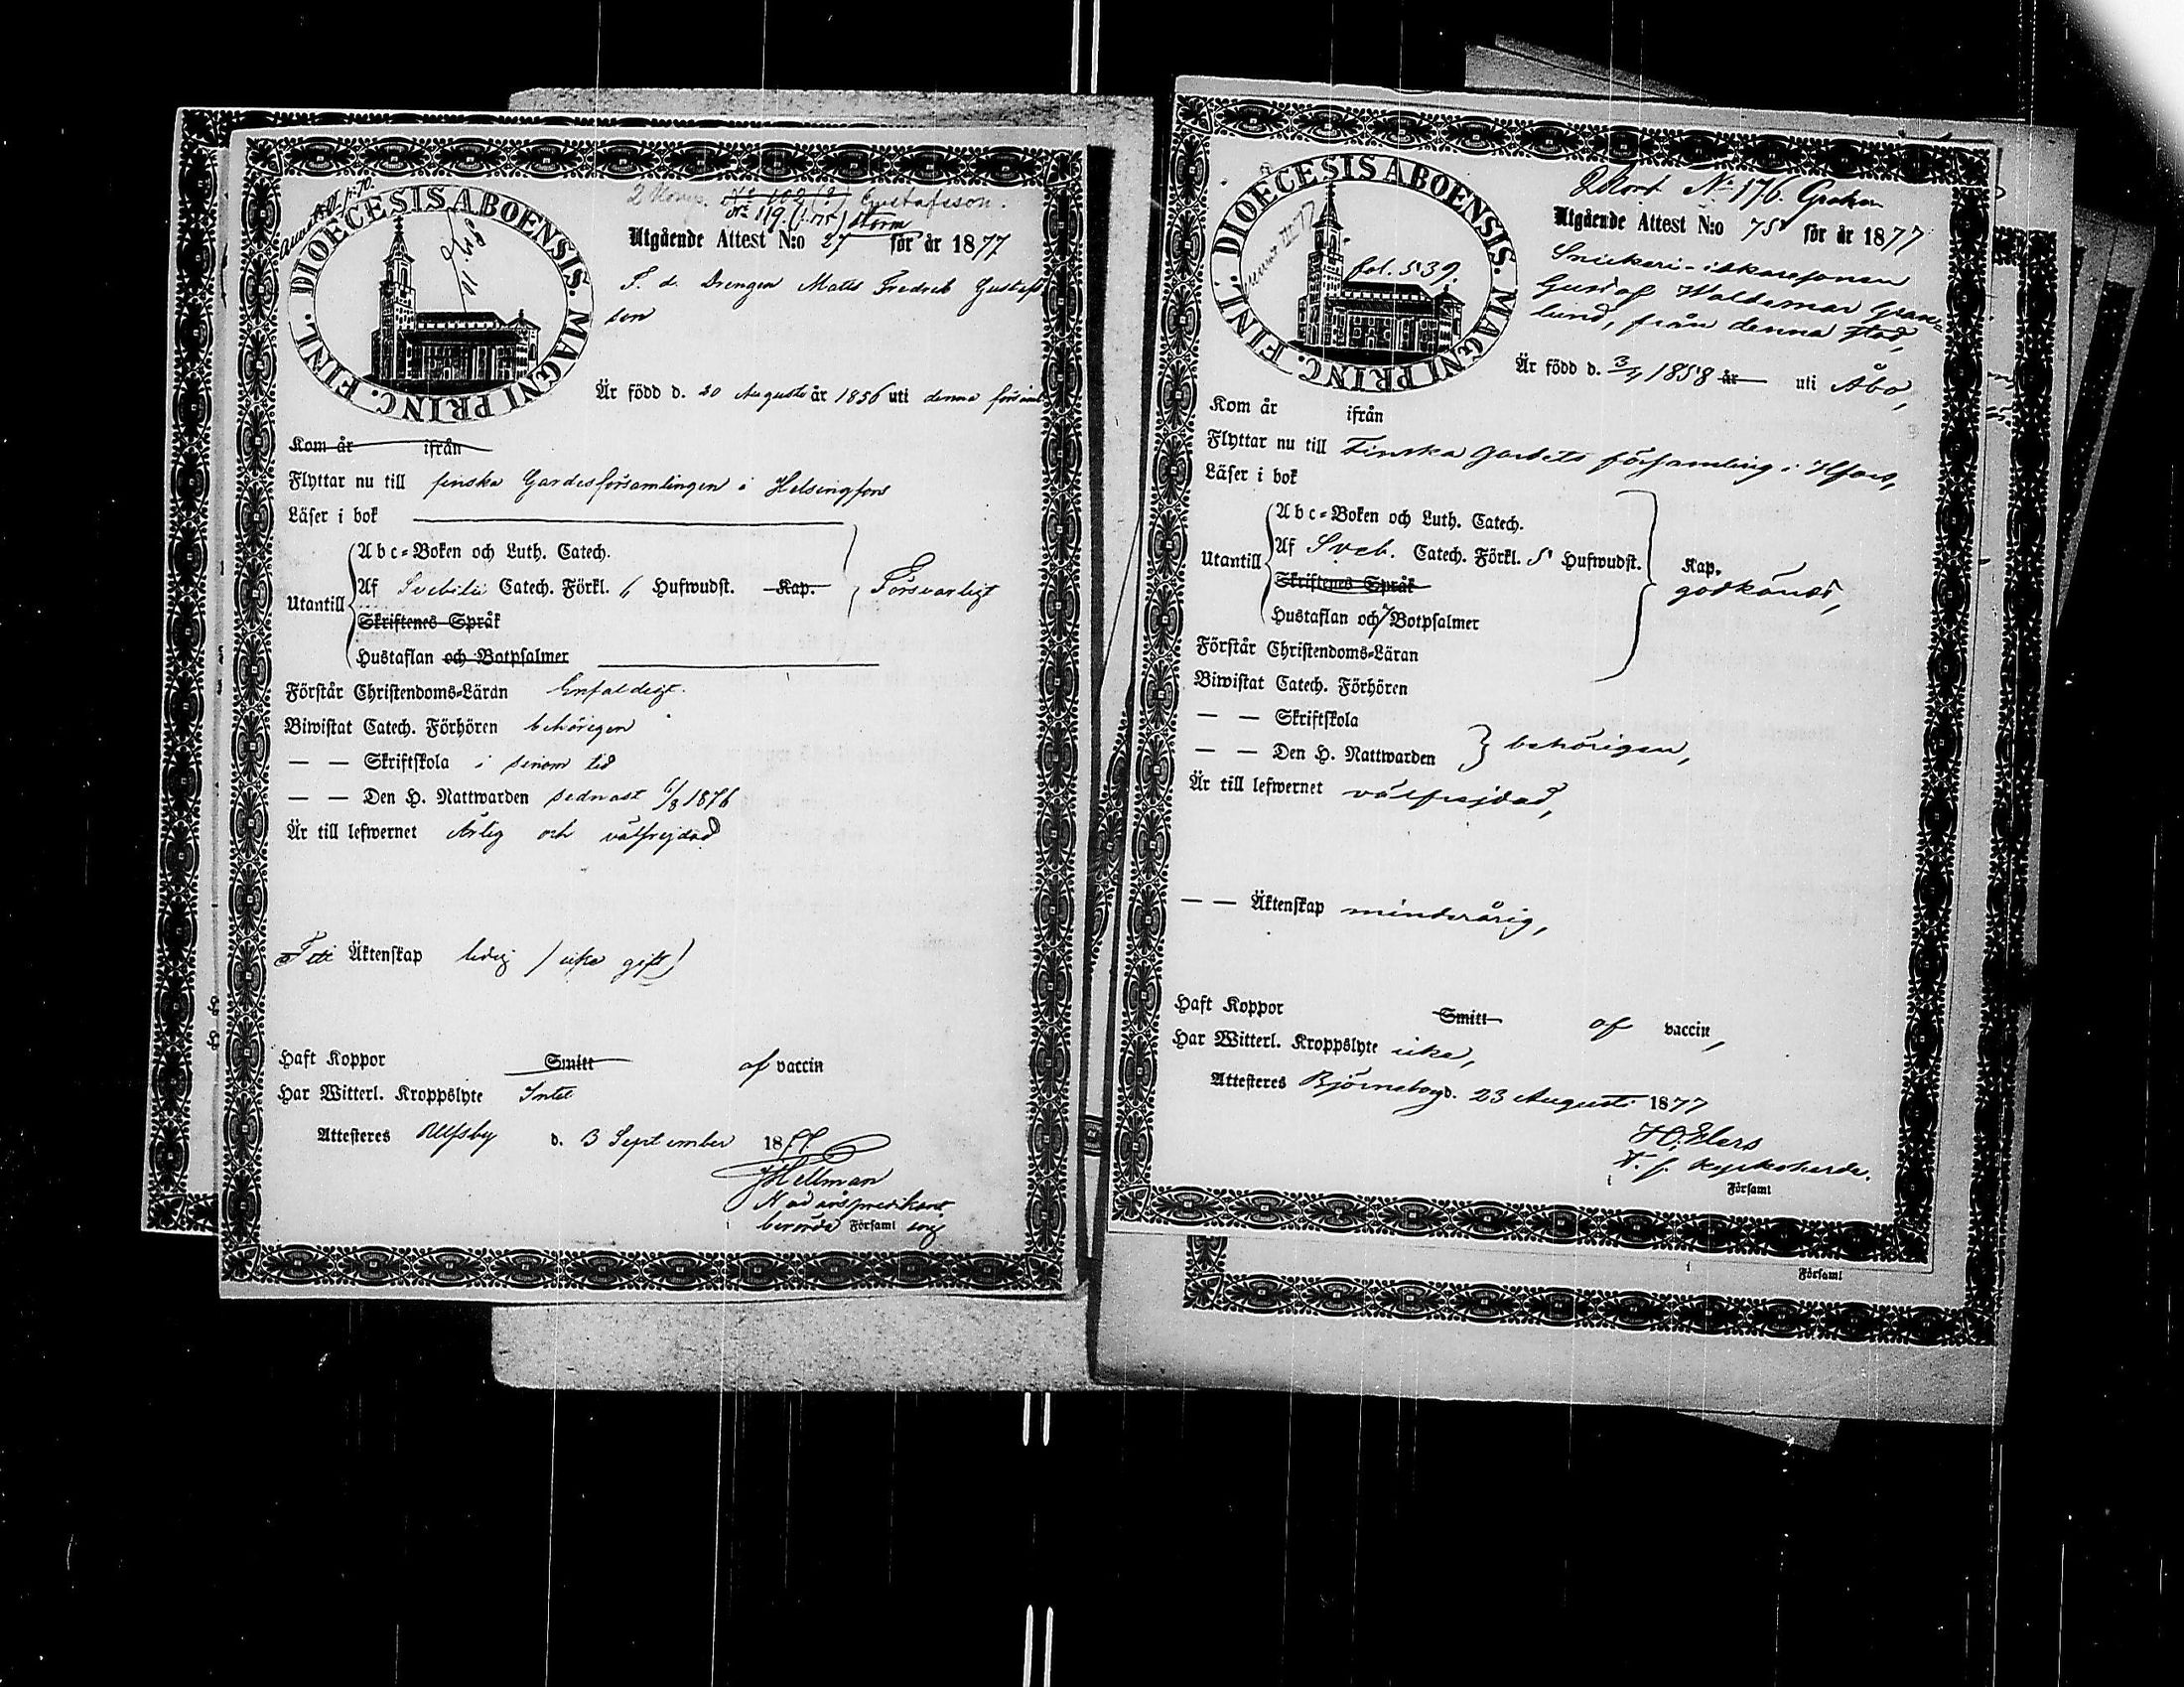 DIOECESIS ABOENSIS. MAGNI PRINC. FINL.
2 Komp. No 102 (2) Gustafsson.
No 119. (1.75) Storm
Utgående Attest N:o 27 för år 1877
F. d. Drengen Matts Fredrik Gustafs
son
Är född d. 20 Augusti år 1856 uti denna församl
Kom år ifrån
Flyttar nu till finska Gardesförsamlingen i Helsingfors
Läser i bok
Abc-Boken och Luth. Catech.
Utantill Af Svebilii Catech. Förkl. 6 Hufwudst. Kap. Försvarligt
Skriftenes Språk
Hustaflan och Botpsalmer
Förstår Christendoms-Läran Enfaldigt.
Biwistat Catech. Förhören behörigen
— — Skriftskola i sinom tid
— — Den H. Nattwarden sednast 6/8 1876
Är till lefwernet Ärlig och välfrejdad
Till Äktenskap ledig (icke gift)
Haft Koppor Smitt af vaccin
Har Witterl. Kroppslyte Intet
Attesteres Ulfsby d. 3 September 1877.
JHellman
Kad ärspredikant
berörda Församl ing
DIOECESIS ABOENSIS. MAGNI PRINC. FINL.
fol. 539.
2 Komp. No 176. Grahn
Utgående Attest N:o 75 för år 1877
Snickeri-idkaresonen
Gustaf Waldemar Gran-
lund, från denna stad,
Är född d. 3/4 1858 år uti Åbo,
Kom år ifrån
Flyttar nu till Finska gardets församling i Hfors,
Läser i bok
Abc-Boken och Luth. Catech.
Utantill Af Sveb. Catech. Förkl. 5 Hufwudst. Kap.
Skriftenes Språk godkändt,
Hustaflan och 7 Botpsalmer
Förstår Christendoms-Läran
Biwistat Catech. Förhören
— — Skriftskola
— — Den H. Nattwarden behörigen,
Är till lefwernet välfrejdad,
— — Äktenskap minderårig,
Haft Koppor Smitt af vaccin,
Har Witterl. Kroppslyte icke,
Attesteres Björneborg d. 23 Augusti 1877
v. f. kyrkoherde.
i Församl
i Församl